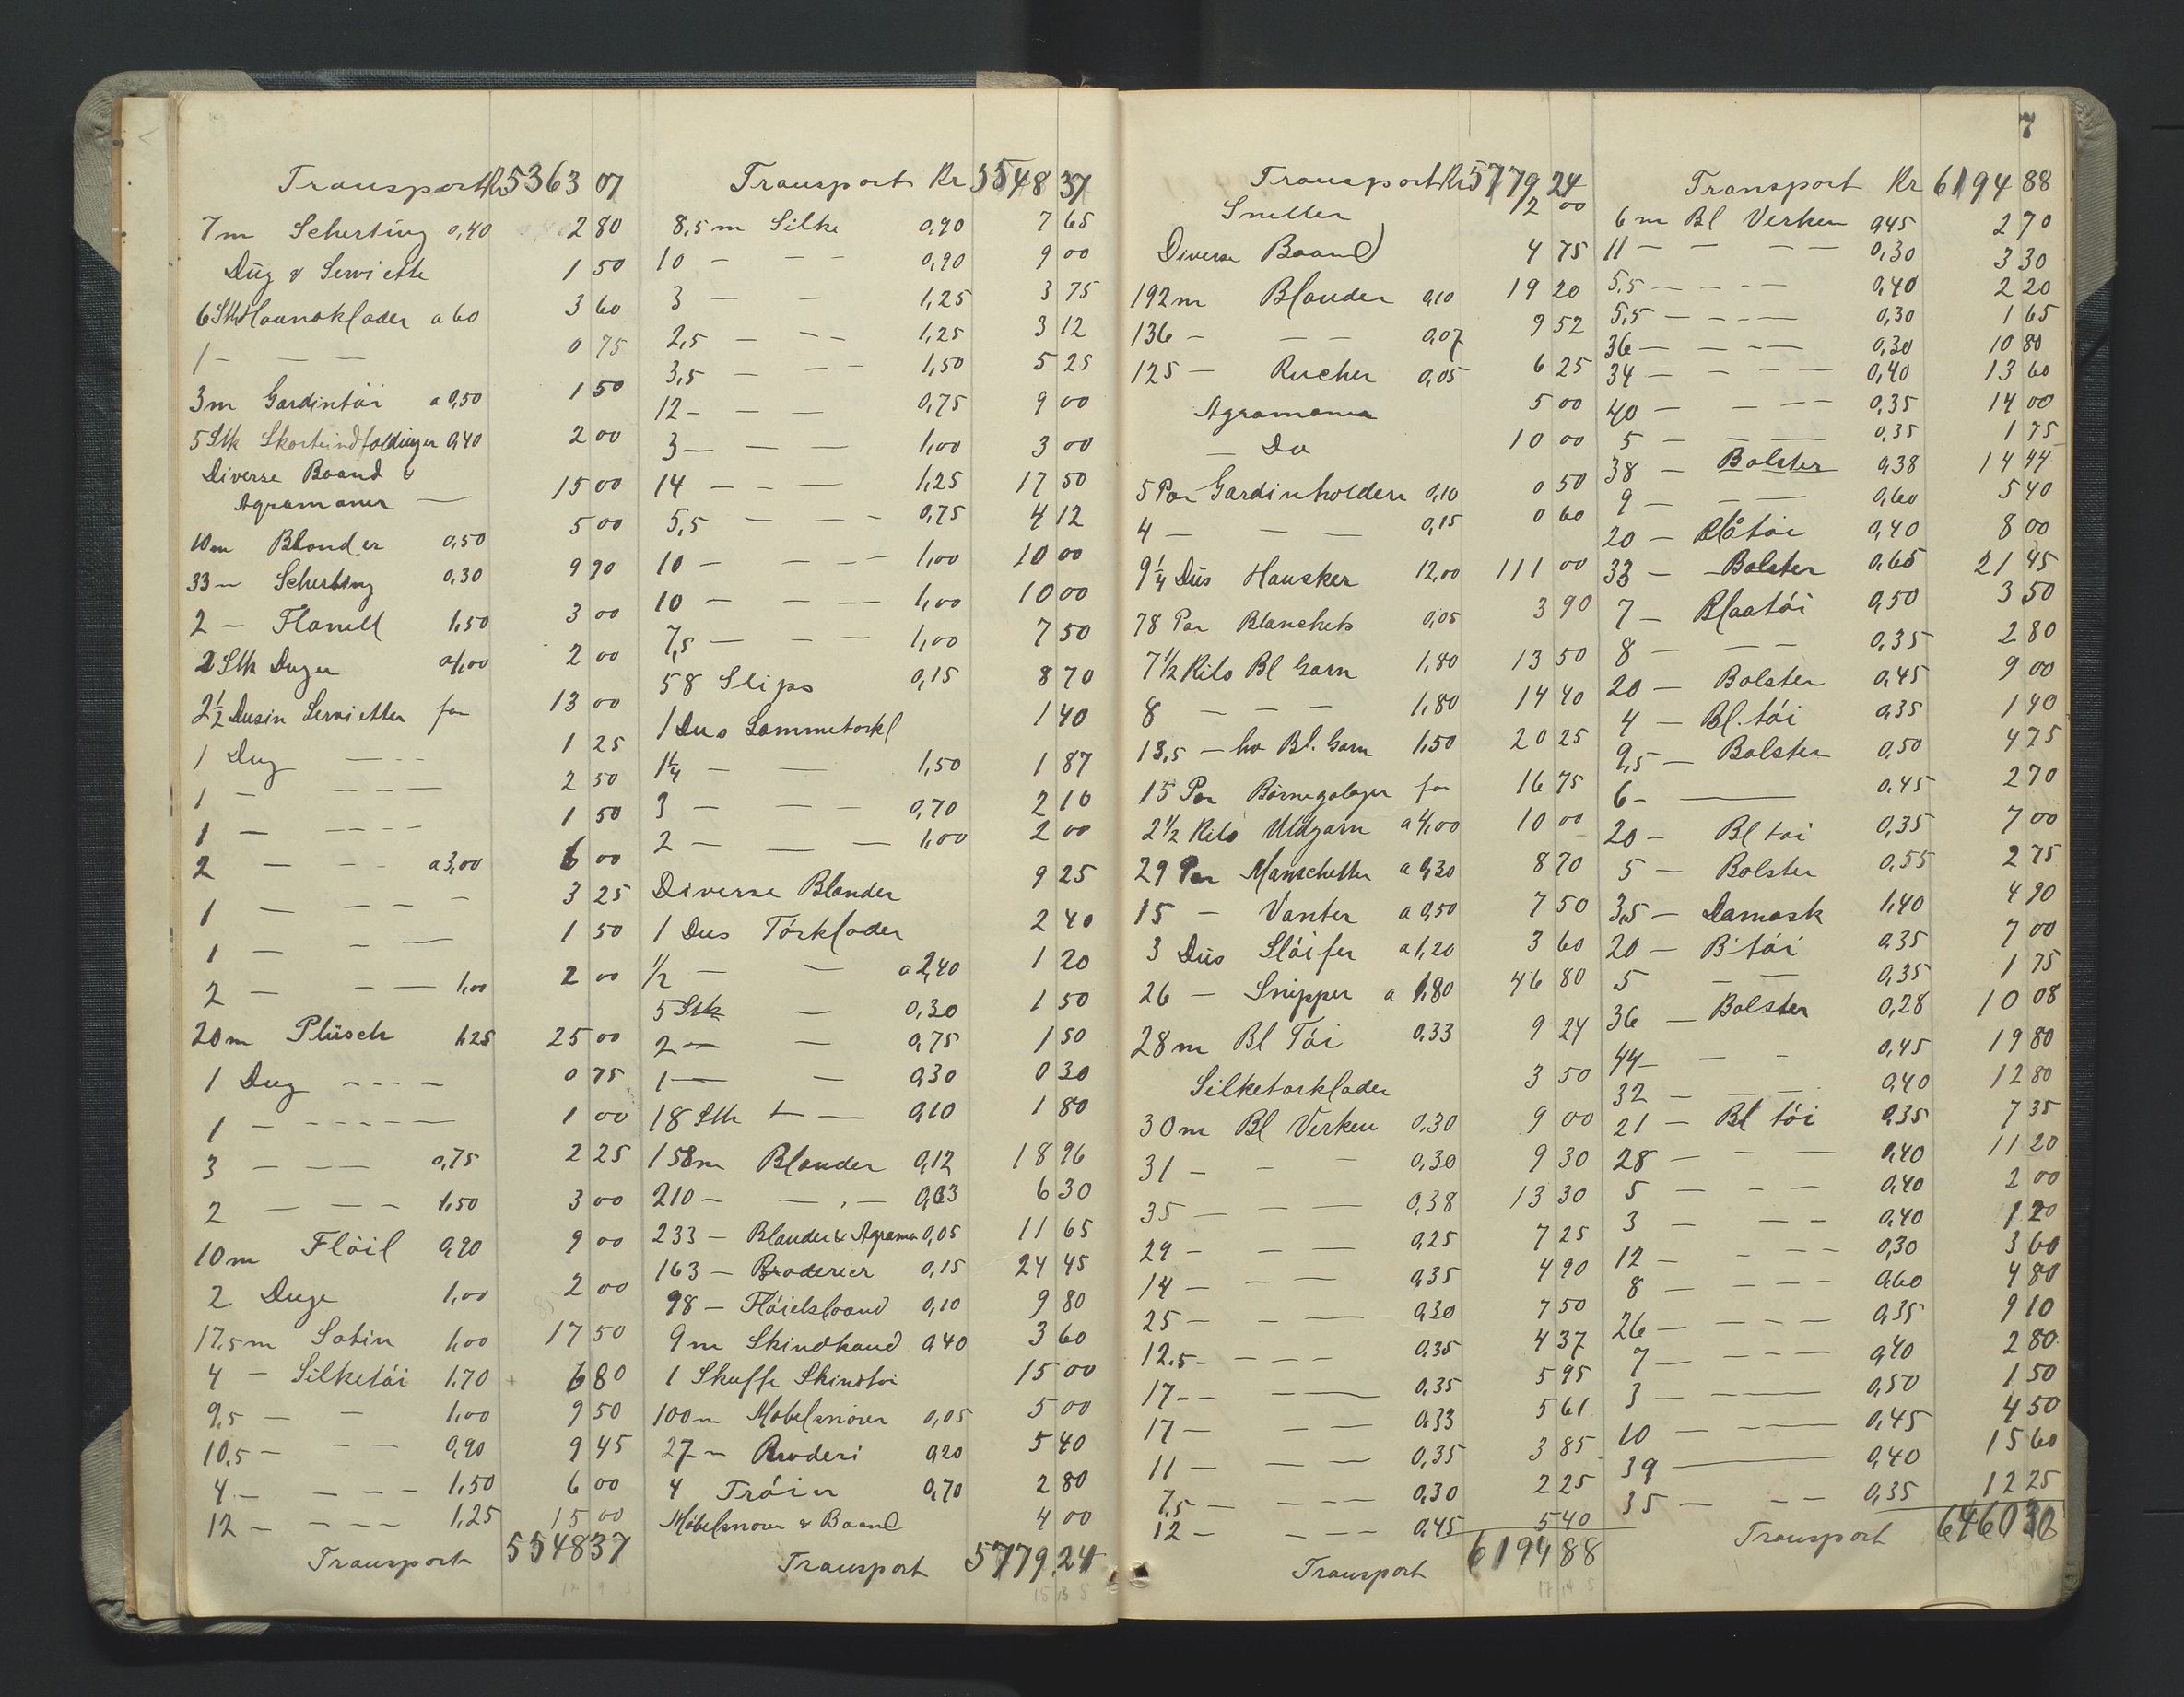 7
Transport Kr 5363 07
7m Scherting 0,40 2 80
Dug & Serviette 1 50
6 Stk Haandklæder a 60 3 60
1 — — — 0 75
3m Gardintöi a 0,50 1 50
5 Stk 0,40 2 00
Diverse Baand &
Agramaner — 15 00
10m Blonder 0,50 5 00
33 — Scherting 0,30 9 90
2 — Flanell 1,50 3 00
2 Stk Duger a 1,00 2 00
2 1/2 Dusin Servietter for 13 00
1 Dug — - - 1 25
1 — — — — 2 50
1 — - - - - 1 50
2 — - - a 3,00 6 00
1 — — — — 3 25
1 — — — 1 50
2 — — — 1,00 2 00
20m Plüsch 1,25 25 00
1 Dug - - - - 0 75
1 - - - - - — 1 00
3 — - - — 0,75 2 25
2 — — — 1,50 3 00
10m Flöil 0,90 9 00
2 Duge 1,00 2 00
17,5m Satin 1,00 17 50
4 — Silketöi 1,70 6 80
9,5 — — 1,00 9 50
10,5 — — — 0,90 9 45
4 — — — — 1,50 6 00
12 — — — — 1,25 15 00
Transport 5548 37
Transport Kr 5548 37
8,5m Silke 0,90 7 65
10 — — — 0,90 9 00
3 — — 1,25 3 75
2,5 — — — 1,25 3 12
3,5 — — — 1,50 5 25
12 — — — 0,75 9 00
3 — — — 1,00 3 00
14 — — — 1,25 17 50
5,5 — — — 0,75 4 12
10 — — — 1,00 10 00
10 — — — — 1,00 10 00
7,5 — — — 1,00 7 50
58 Slips 0,15 8 70
1 Dus Lommetorkl 1 40
1 1/4 — — 1,50 1 87
3 — — — 0,70 2 10
2 — — — 1,00 2 00
Diverse Blonder 9 25
1 Dus Törklæder 2 40
1/2 — — a 2,40 1 20
5 Stk — 0,30 1 50
2 — — 0,75 1 50
1 — — 0,30 0 30
18 Stk — — 0,10 1 80
158m Blonder 0,12 18 96
210 — — . — 0,03 6 30
233 — Blonder & Agraman 0,05 11 65
163 — Broderier 0,15 24 45
98 — Flöielsbaand 0,10 9 80
9m Skindkand 0,40 3 60
1 Skuffe Skindtöi 15 00
100m Möbelsnorer 0,05 5 00
27 — Broderi 0,20 5 40
4 Tröier 0,70 2 80
Möbelsnorer & Baand 4 00
Transport 5779,24
Transport Kr 5779 24
Sneller 12 00
Diverse Baand 4 75
192m Blonder 0,10 19 20
136 — — — 0,07 9 52
125 — Rucher 0,05 6 25
Agramaner 5 00
— Do 10 00
5 Par Gardinholdere 0,10 0 50
4 — — 0,15 0 60
9 1/4 Dus Hansker 12,00 111 00
78 Par Blanchets 0,05 3 90
7 1/2 Kilo Bl Garn 1,80 13 50
8 — — — 1,80 14 40
13,5 — hv Bl. Garn 1,50 20 25
15 Par Börnegaloger for 16 75
2 1/2 Kilo Uldgarn a 4,00 10 00
29 Par Manschetter a 0,30 8 70
15 — Vanter a 0,50 7 50
3 Dus Slöifer a 1,20 3 60
26 — Snipper a 1,80 46 80
28m Bl Töi 0,33 9 24
Silketorklæder 3 50
30m Bl Verken 0,30 9 00
31 — — — 0,30 9 30
35 — — — 0,38 13 30
29 — — — 0,25 7 25
14 — — — 0,35 4 90
25 — — — 0,30 7 50
12,5 — — — — 0,35 4 37
17 — — — 0,35 5 95
17 — — — 0,33 5 61
11 — — — 0,35 3 85
7,5 — — — 0,30 2 25
12 — — — — 0,45 5 40
Transport 6194 88
Transport Kr 6194 88
6m Bl Verken 0,45 2 70
11 — — — — 0,30 3 30
5,5 — — — — 0,40 2 20
5,5 — — — — 0,30 1 65
36 — — — — 0,30 10 80
34 — — — — 0,40 13 60
40 — — — — 0,35 14 00
5 — — — 0,35 1 75
38 — Bolster 0,38 14 44
9 — — — 0,60 5 40
20 — Blåtöi 0,40 8 00
33 — Bolster 0,65 21 45
7 — Blaatöi 0,50 3 50
8 — — — 0,35 2 80
20 — Bolster 0,45 9 00
4 — Bl. töi 0,35 1 40
9,5 — Bolster 0,50 4 75
6 — — 0,45 2 70
20 — Bl töi 0,35 7 00
5 — Bolster 0,55 2 75
3,5 — Damask 1,40 4 90
20 — B töi 0,35 7 00
5 — — 0,35 1 75
36 — Bolster 0,28 10 08
44 — — - 0,45 19 80
32 — — — 0,40 12 80
21 — Bl töi 0,35 7 35
28 — — — 0,40 11 20
5 — — — — 0,40 2 00
3 — — — 0,40 1 20
12 — — — — 0,30 3 60
8 — — — — 0,60 4 80
26 — — — — 0,35 9 10
7 — — — — 0,40 2 80
3 — — — 0,50 1 50
10 — — — 0,45 4 50
39 — — 0,40 15 60
35 — — — 0,35 12 25
Transport 6460 30